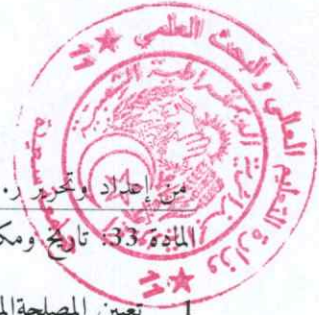 وزارة التعليم العالي والبحث العلمي
الجمهورية الجزائرية الديمقراطية الشعبية
من إعداد وتحرير ر.
المادة 33: تاريخ ومك
1 تعين المصلحةالم